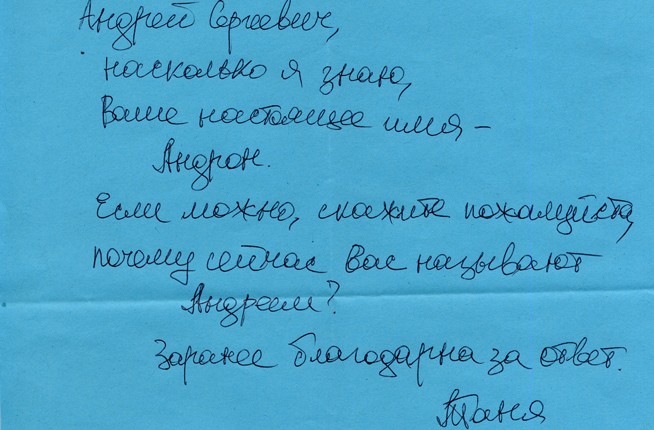 Андрей Сергеевич,
насколько я знаю,
Ваше настоящее имя –
Андрон.
Если можно, скажите пожалуйста,
почему сейчас Вас называют
Андреем?
Заранее благодарна за ответ.
Таня